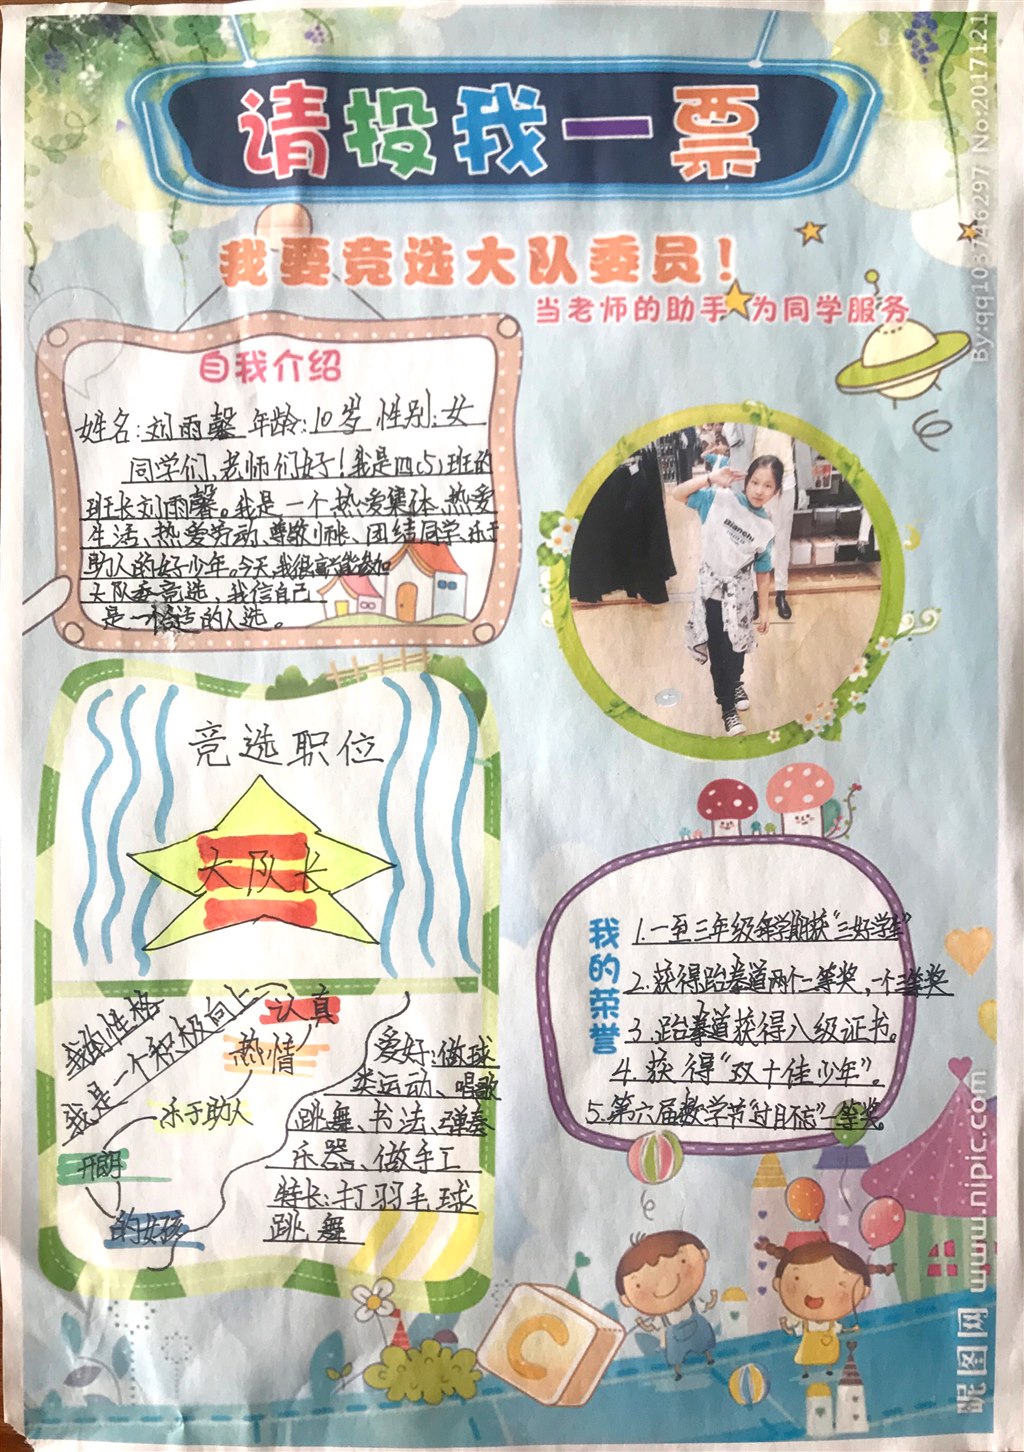 请投我一票
我要竞选大队委员！
当老师的助手 为同学服务
自我介绍
姓名:刘雨馨 年龄:10岁 性别:女
同学们、老师们好！我是四(5)班的
班长刘雨馨。我是一个热爱集体、热爱
生活、热爱劳动、尊敬师长、团结同学、乐于
助人的好少年。今天，我很高兴能参加
大队委竞选，我信自己
是一个合适的人选。
Bianchi
竞选职位
大队长
我的性格
我是一个积极向上
认真
热情
乐于助人
开朗
的女孩
爱好:做球
类运动、唱歌
跳舞、书法、弹奏
乐器、做手工
特长:打羽毛球
跳舞
我的荣誉
1.一至三年级每学期获“三好学生”
2.获得跆拳道两个二等奖，一个三等奖
3.跆拳道获得八级证书。
4.获得“双十佳少年”。
5.第六届数学节“过目不忘”一等奖。
C
By:qq1037446297 No:20171121
昵图网 www.nipic.com